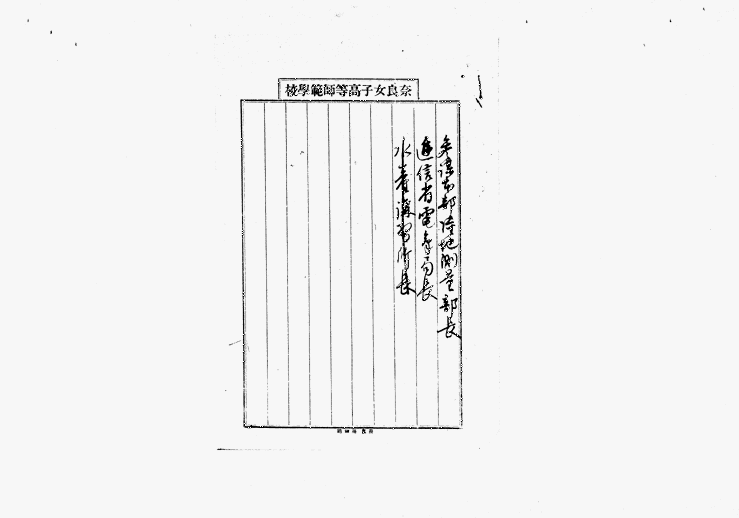 奈良女子高等師範學校
参謀本部陸地測量部長
逓信省電気局長
水産講習所長